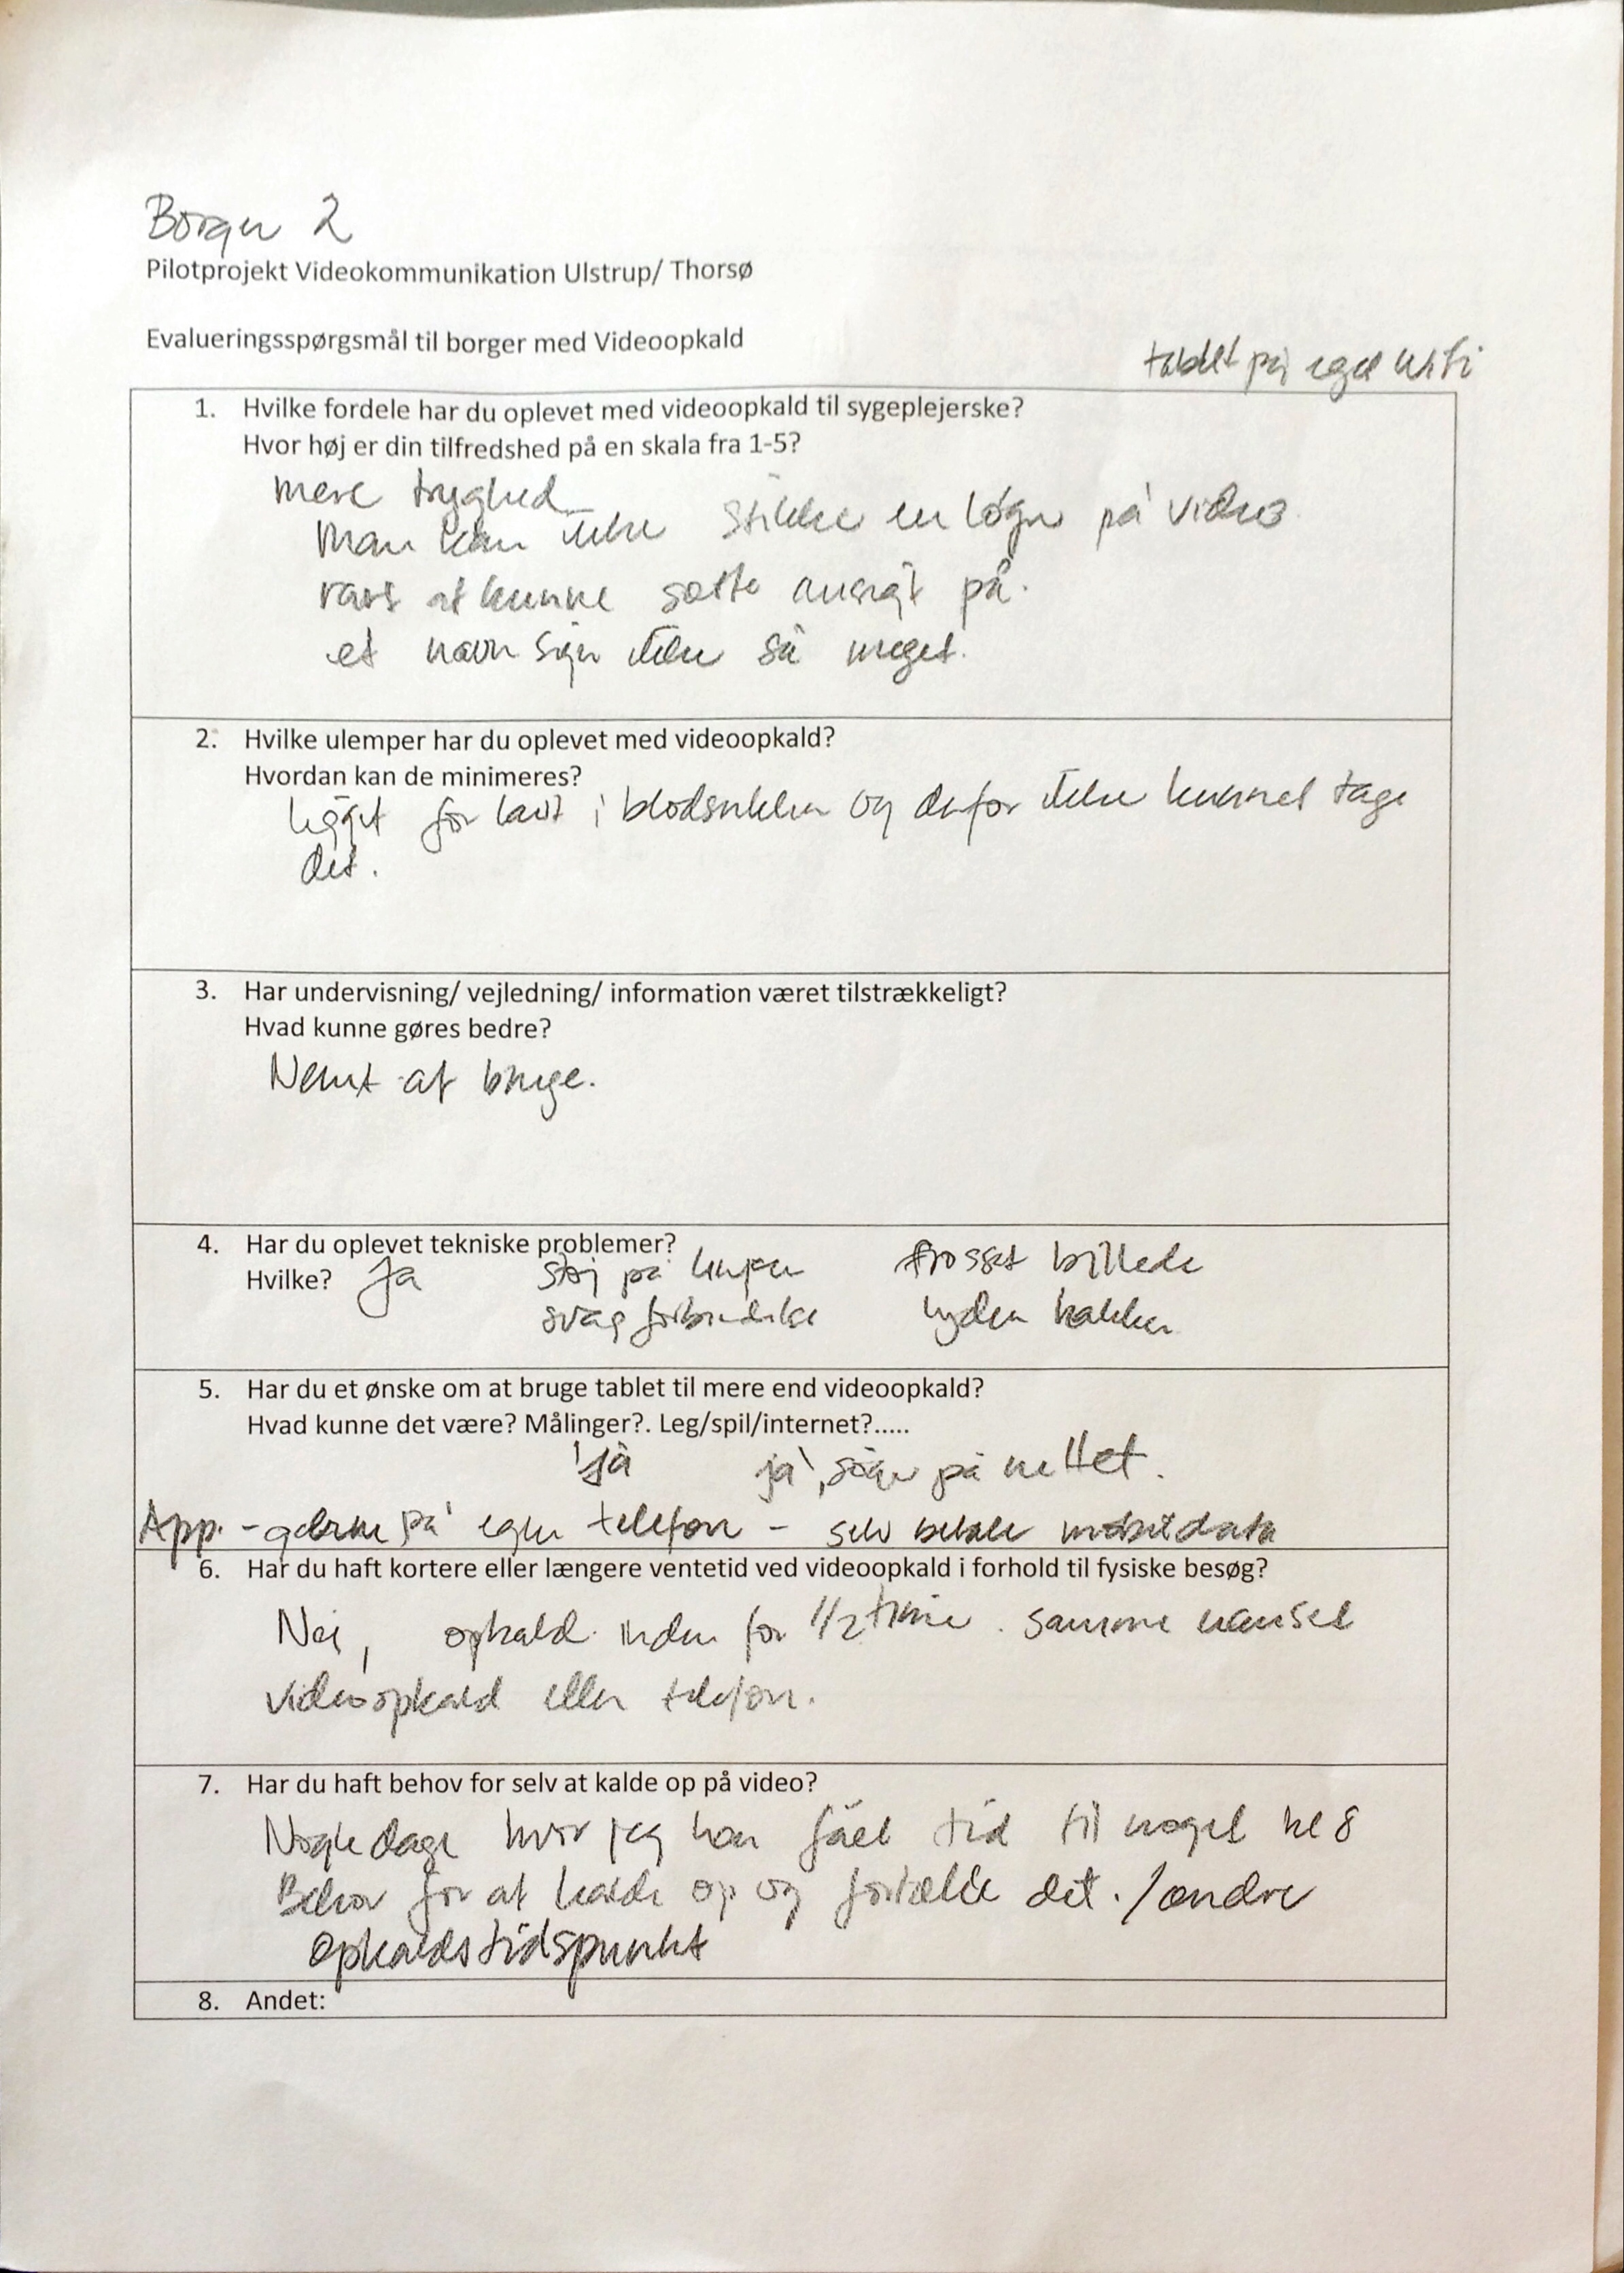 Borger 2
Pilotprojekt Videokommunikation Ulstrup/ Thorsø
Evalueringsspørgsmål til borger med Videoopkald
tablet på eget Wifi
1. Hvilke fordele har du oplevet med videoopkald til sygeplejerske?
Hvor høj er din tilfredshed på en skala fra 1-5?
mere tryghed
Man kan ikke stikke en løgn på video
rart at kunne sætte ansigt på.
et navn siger ikke så meget.
2. Hvilke ulemper har du oplevet med videoopkald?
Hvordan kan de minimeres?
ligget for lavt i blodsukker og derfor ikke kunnet tage
det.
3. Har undervisning/ vejledning/ information været tilstrækkeligt?
Hvad kunne gøres bedre?
Nemt at bruge.
4. Har du oplevet tekniske problemer?
Hvilke? Ja støj på linjen frosset billede
svag forbindelse lyden hakker
5. Har du et ønske om at bruge tablet til mere end videoopkald?
Hvad kunne det være? Målinger?. Leg/spil/internet?.....
ja ja, søge på nettet.
App. - gerne på egen telefon - selv betale mobildata
6. Har du haft kortere eller længere ventetid ved videoopkald i forhold til fysiske besøg?
Nej, opkald inden for 1/2 time. samme uanset
videoopkald eller telefon.
7. Har du haft behov for selv at kalde op på video?
Nogle dage hvor jeg har fået tid til noget kl 8
Behov for at kalde op og fortælle det. / ændre
opkaldstidspunkt
8. Andet: